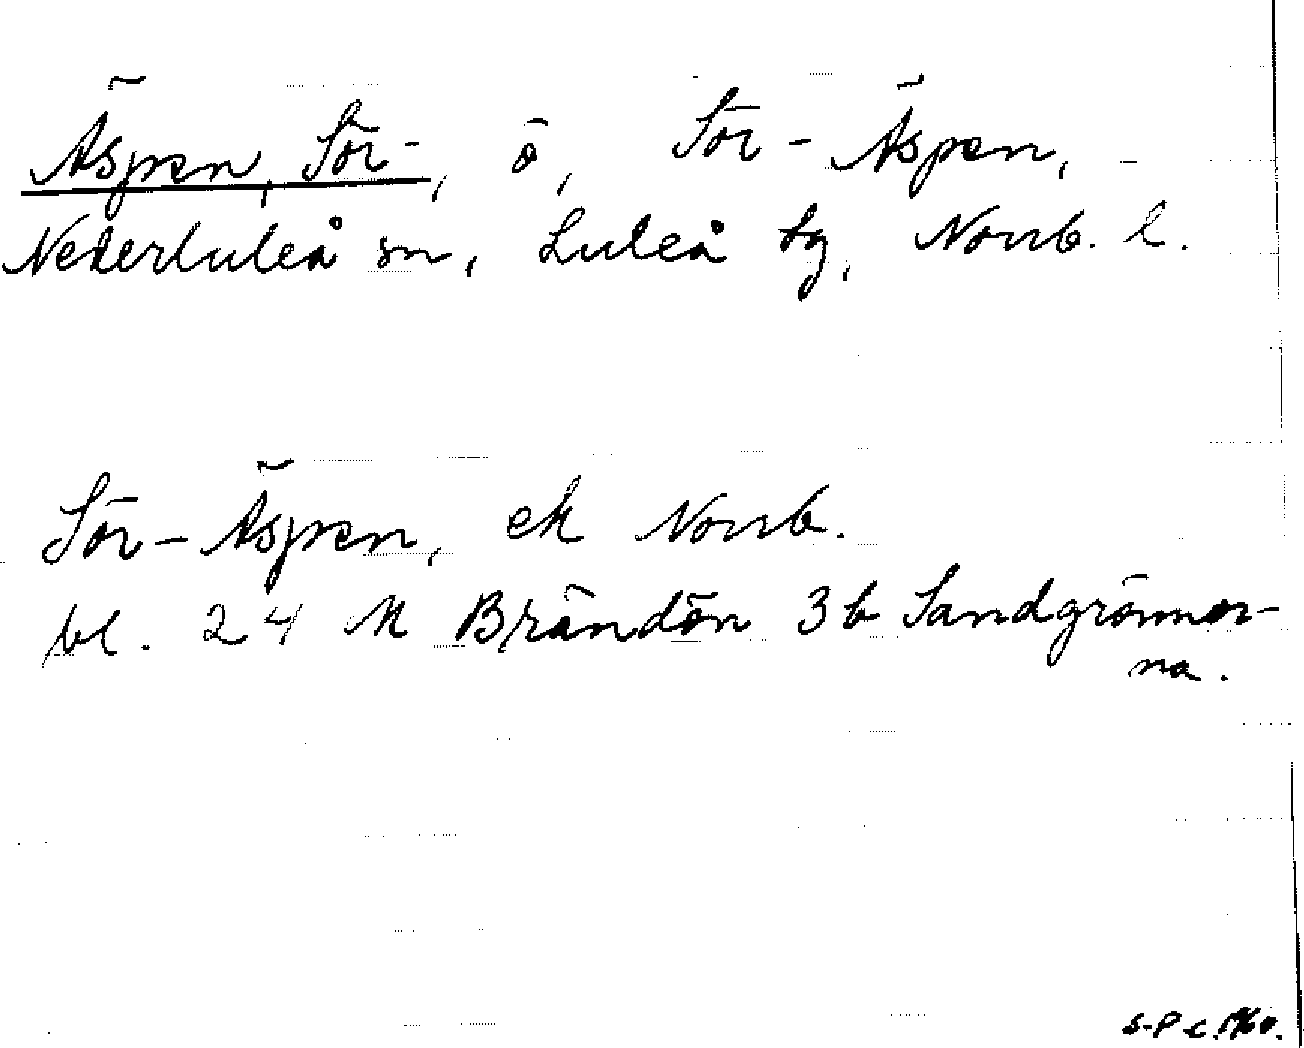 Äspen, Sör-, ö, Sör-Äspen,
Nederluleå sn, Luleå tg, Norrb. l.
Sör-Äspen, ek Norrb.
bl. 24 M Brändön 3b Sandgrönnor-
na.
S-P c. 1960.